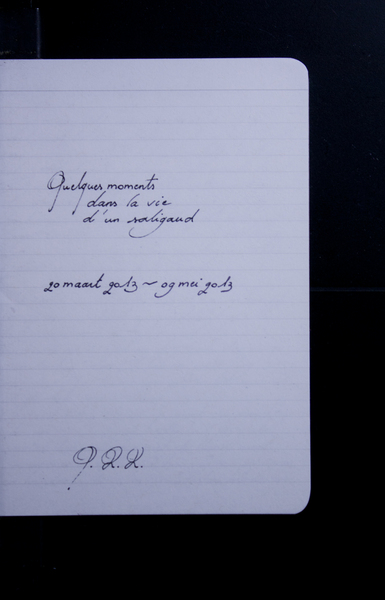 Quelques moments
dans la vie
d'un saligaud
20 maart 2013 ~ 09 mei 2013
P.R.K.